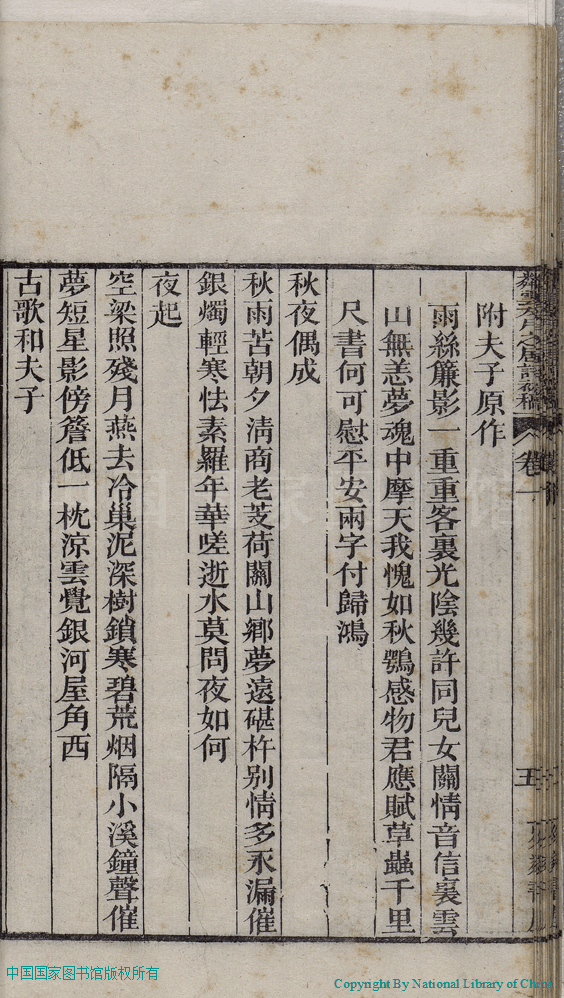 附夫子原作
雨絲簾影一重重客裏光陰幾許同兒女關情音信裏雲
山無恙夢魂中摩天我愧如秋鶚感物君應賦草蟲千里
尺書何可慰平安兩字付歸鴻
秋夜偶成
秋雨苦朝夕淸商老芰荷關山鄉夢遠碪杵別情多氶漏催
銀燭輕寒怯素羅年華嗟逝水莫問夜如何
夜起
空梁照殘月燕去冷巢泥深樹鎖寒碧荒烟隔小溪鐘聲催
夢短星影傍簷低一枕涼雲覺銀河屋角西
古歌和夫子
卷一
五
中国国家图书馆版权所有
Copyright By National Library of China